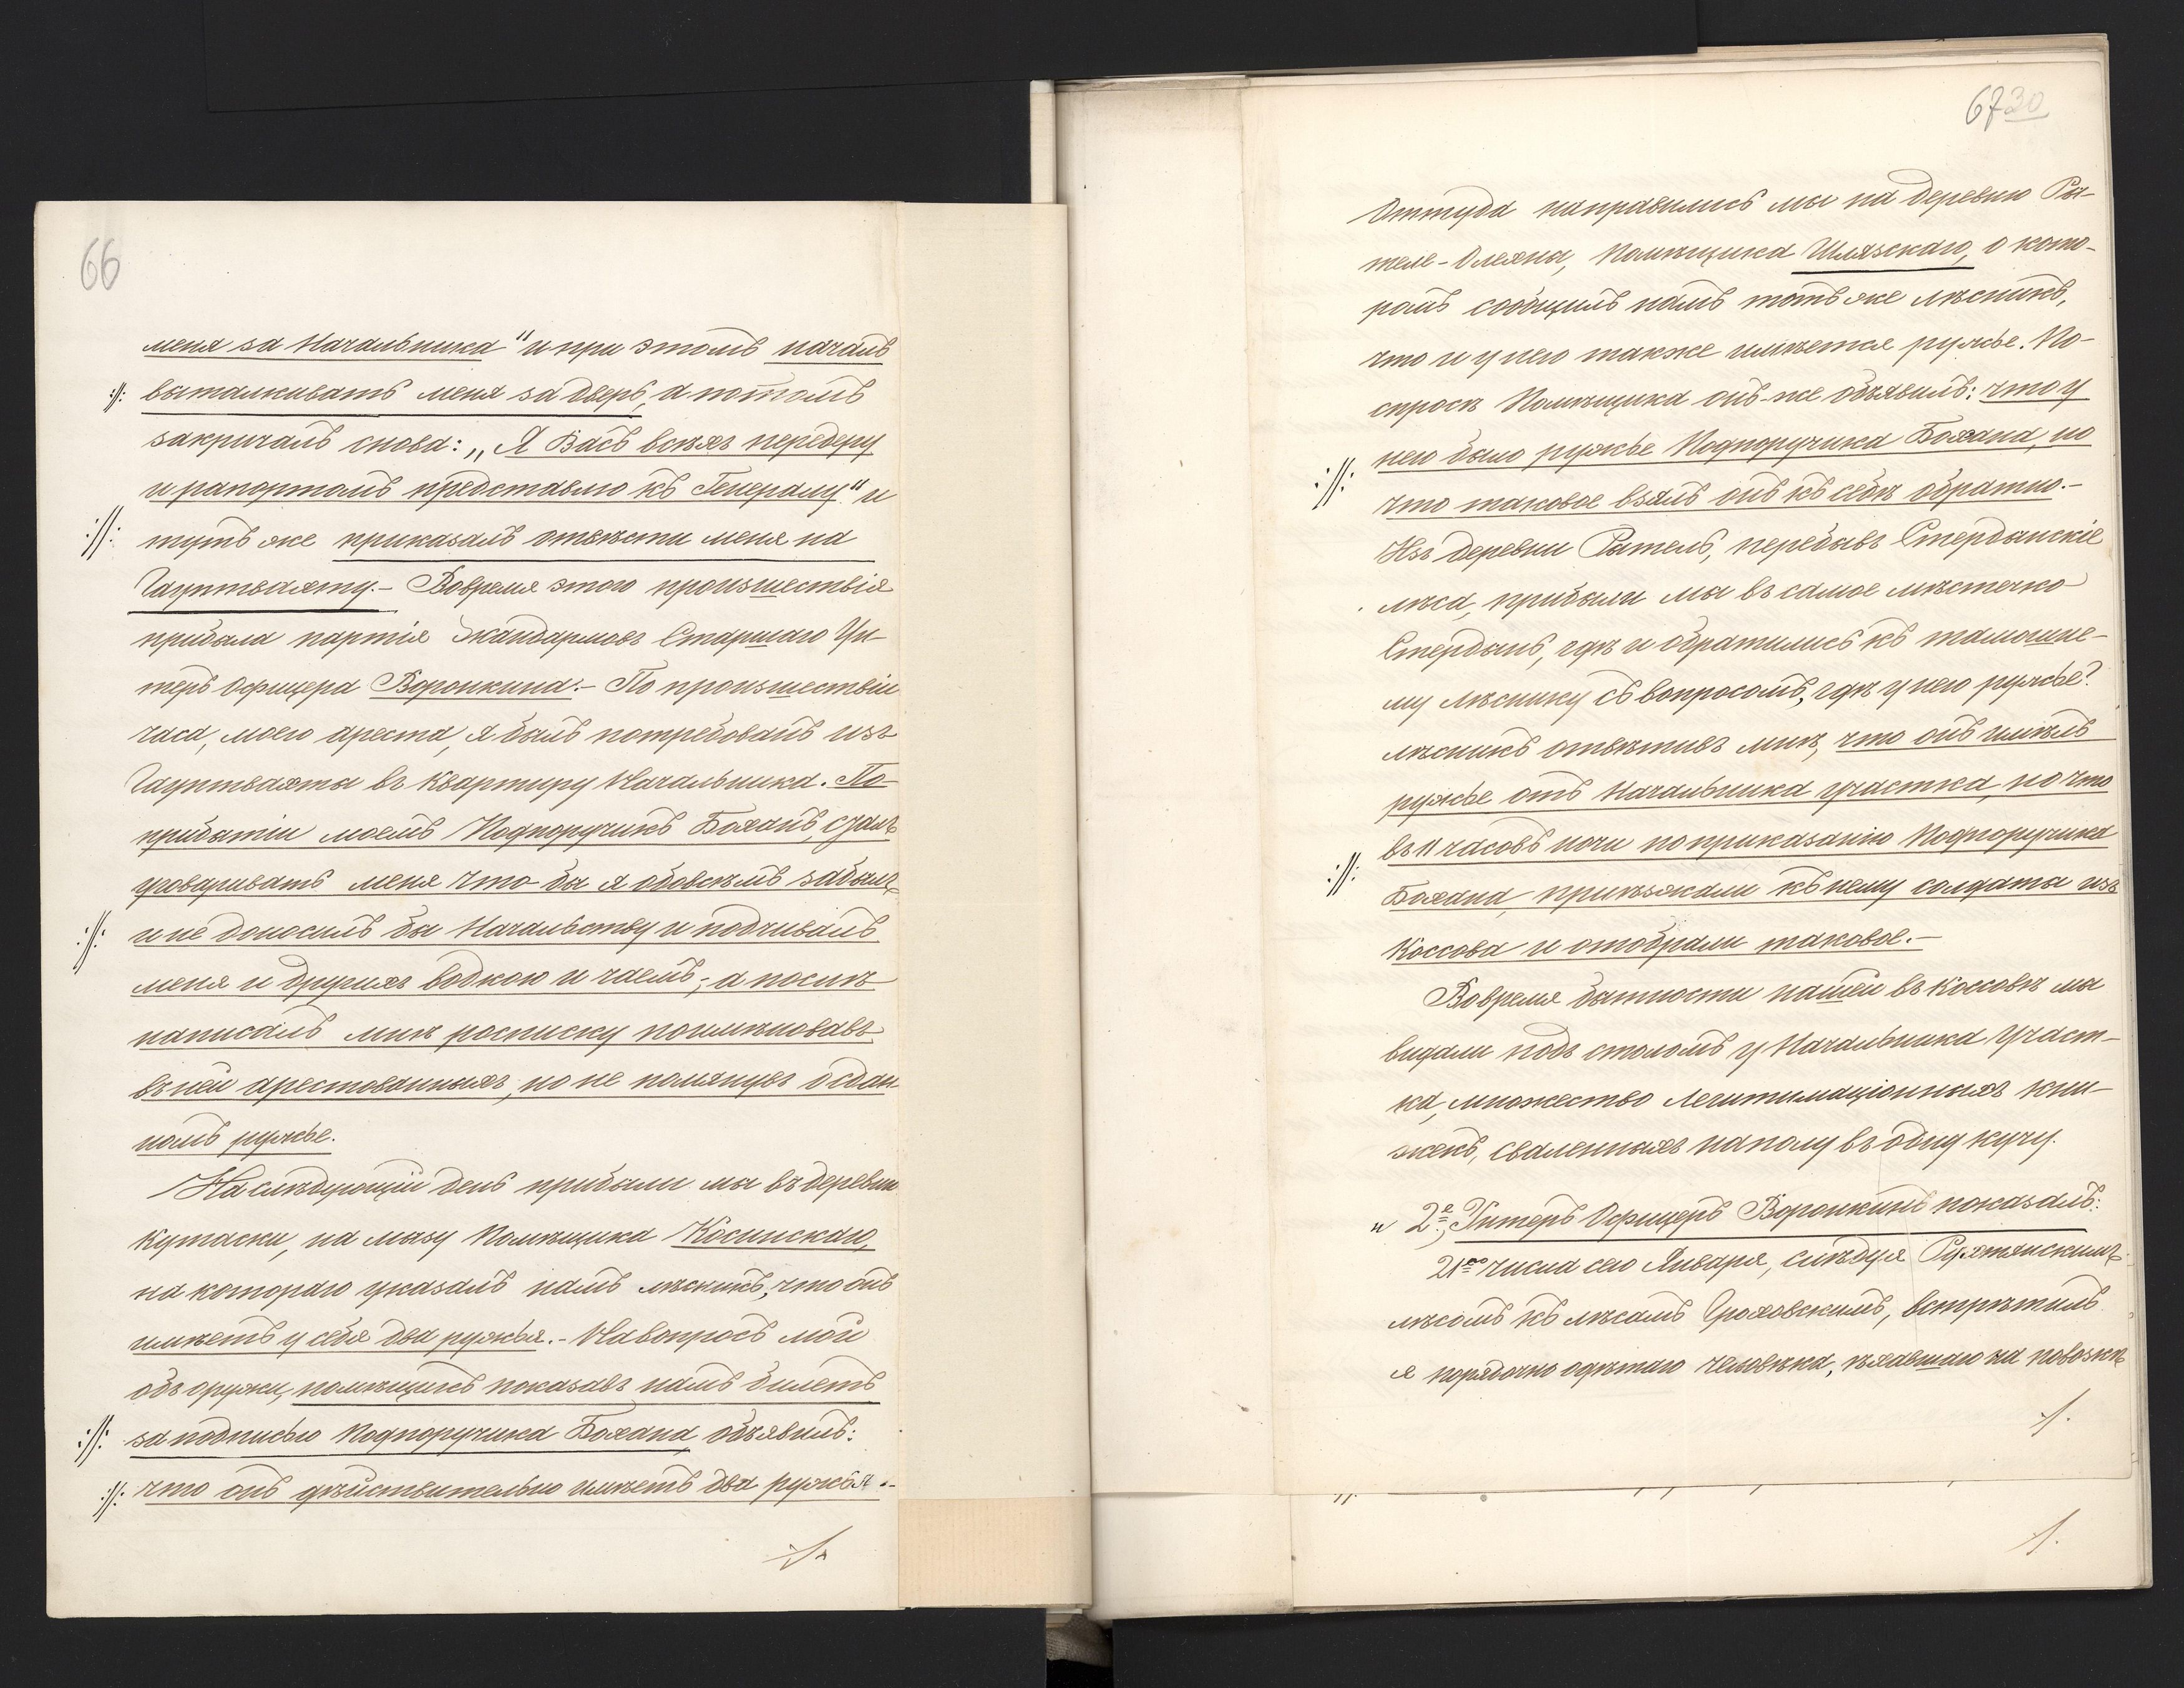 66
меня за Начальника" и при этомъ началъ
:/: выталкивать меня за дверь, а потомъ
закричалъ снова: „Я Васъ всѣхъ передеру
и рапортомъ представлю къ Генералу" и
:/: тутъ же приказалъ отвѣсти меня на
Гауптвахту.- Вовремя этого произшествія
прибыла партія Жандармовъ Старшаго Ун-
теръ Офицера Воронкина.- По произшествіи
часа, моего ареста, я былъ потребованъ изъ
Гауптвахты въ Квартиру Начальника. По
прибытіи моемъ Подпоручикъ Боханъ, сталъ
уговаривать меня что бы я обовсѣмъ забылъ
:/: и не доносилъ бы Начальству и подчивалъ
меня и другихъ водкою и чаемъ; а послѣ
написалъ мнѣ росписку поимѣновавъ
въ ней арестованныхъ, но не помянувъ о сдан
номъ ружье.
На слѣдующій день прибыли мы въ деревню
Кутаски, на мызу Помѣщика Косинскаго,
на котораго указалъ намъ лѣсникъ, что онъ
имѣетъ у себя два ружья.- На вопросъ мой
объ оружіи, помѣщикъ показавъ намъ билетъ
:/: за подписью Подпоручика Бохана, объявилъ:
:/: что онъ дѣйствительно имѣетъ два ружья.-
./.
67 30
Оттуда направились мы на деревню Ра-
теле-Олехна, Помѣщика Шлязскаго, о кото-
ромъ сообщилъ намъ тотъ же лѣсникъ,
что и у него также имѣется ружье. По-
спросѣ Помѣщика онъ-же объявилъ: что у
:/: него было ружье Подпоручика Бохана, но
что таковое взялъ онъ къ себѣ обратно.-
Изъ деревни Ратель, перебывъ Стердынскіе
лѣса, прибыли мы въ самое мѣстечко
Стердынь, гдѣ и обратились къ тамошне-
му лѣснику съ вопросомъ, гдѣ у него ружье?
лѣсникъ отвѣтивъ мнѣ, что онъ имѣлъ
ружье отъ Начальника участка, но что
въ 11 часовъ ночи по приказанію Подпоручика
:/: Бохана, приѣзжали къ нему солдаты изъ
Коссова и отобрали таковое.-
Вовремя бытности нашей въ Коссовѣ мы
видали подъ столомъ у Начальника Участ-
ка, множество Легитимаціонныхъ кни-
жекъ, сваленныхъ на полу въ одну кучу.
„ 2е., Унтеръ Офицеръ Воронкинъ показалъ:
21го числа сего Января, слѣдуя
лѣсомъ къ лѣсамъ Гроховскимъ, встрѣтилъ
я порядочно одѣтаго человѣка, ѣхавшаго на повозкѣ
./.
./.